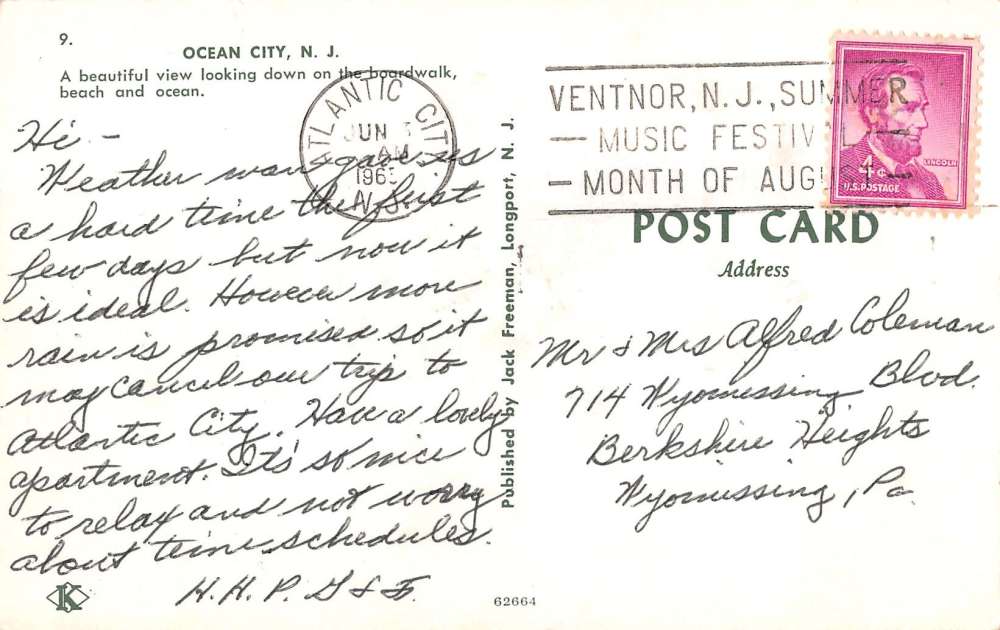 9.
OCEAN CITY, N. J.
A beautiful view looking down on the boardwalk,
beach and ocean.
Hi -
Weather man gave us
a hard time the first
few days but now it
is ideal. However more
rain is promised so it
may cancel our trip to
Atlantic City. Have a lovely
apartment. It's so nice
to relax and not worry
about time schedules.
H. H. P. G & F.
K
Published by Jack Freeman, Longport, N. J.
62664
ATLANTIC CITY
JUN
AM
N.J.
VENTNOR, N.J., SUMMER
— MUSIC FESTIVAL —
— MONTH OF AUGUST —
LINCOLN
4¢
U.S. POSTAGE
POST CARD
Address
Mr & Mrs Alfred Coleman
714 Wyomissing Blvd.
Berkshire Heights
Wyomissing, Pa